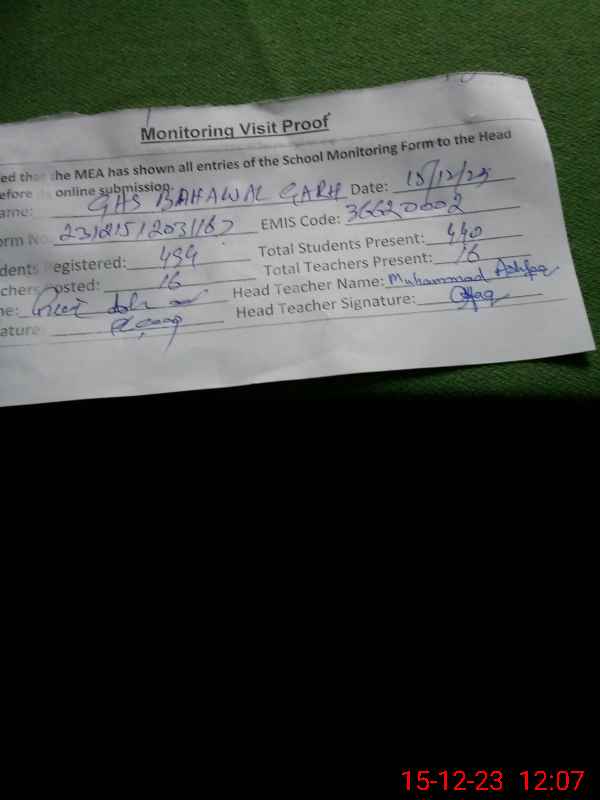 Monitoring Visit Proof
ed that the MEA has shown all entries of the School Monitoring Form to the Head
efore online submission.
ame: GHS BAHAWAL GARH Date: 15/12/23
orm No. EMIS Code: 36620002
dents Registered: 494 Total Students Present: 440
chers Posted: 16 Total Teachers Present: 16
me: Head Teacher Name: Muhammad Ashfaq
ature: Head Teacher Signature:
15-12-23 12:07